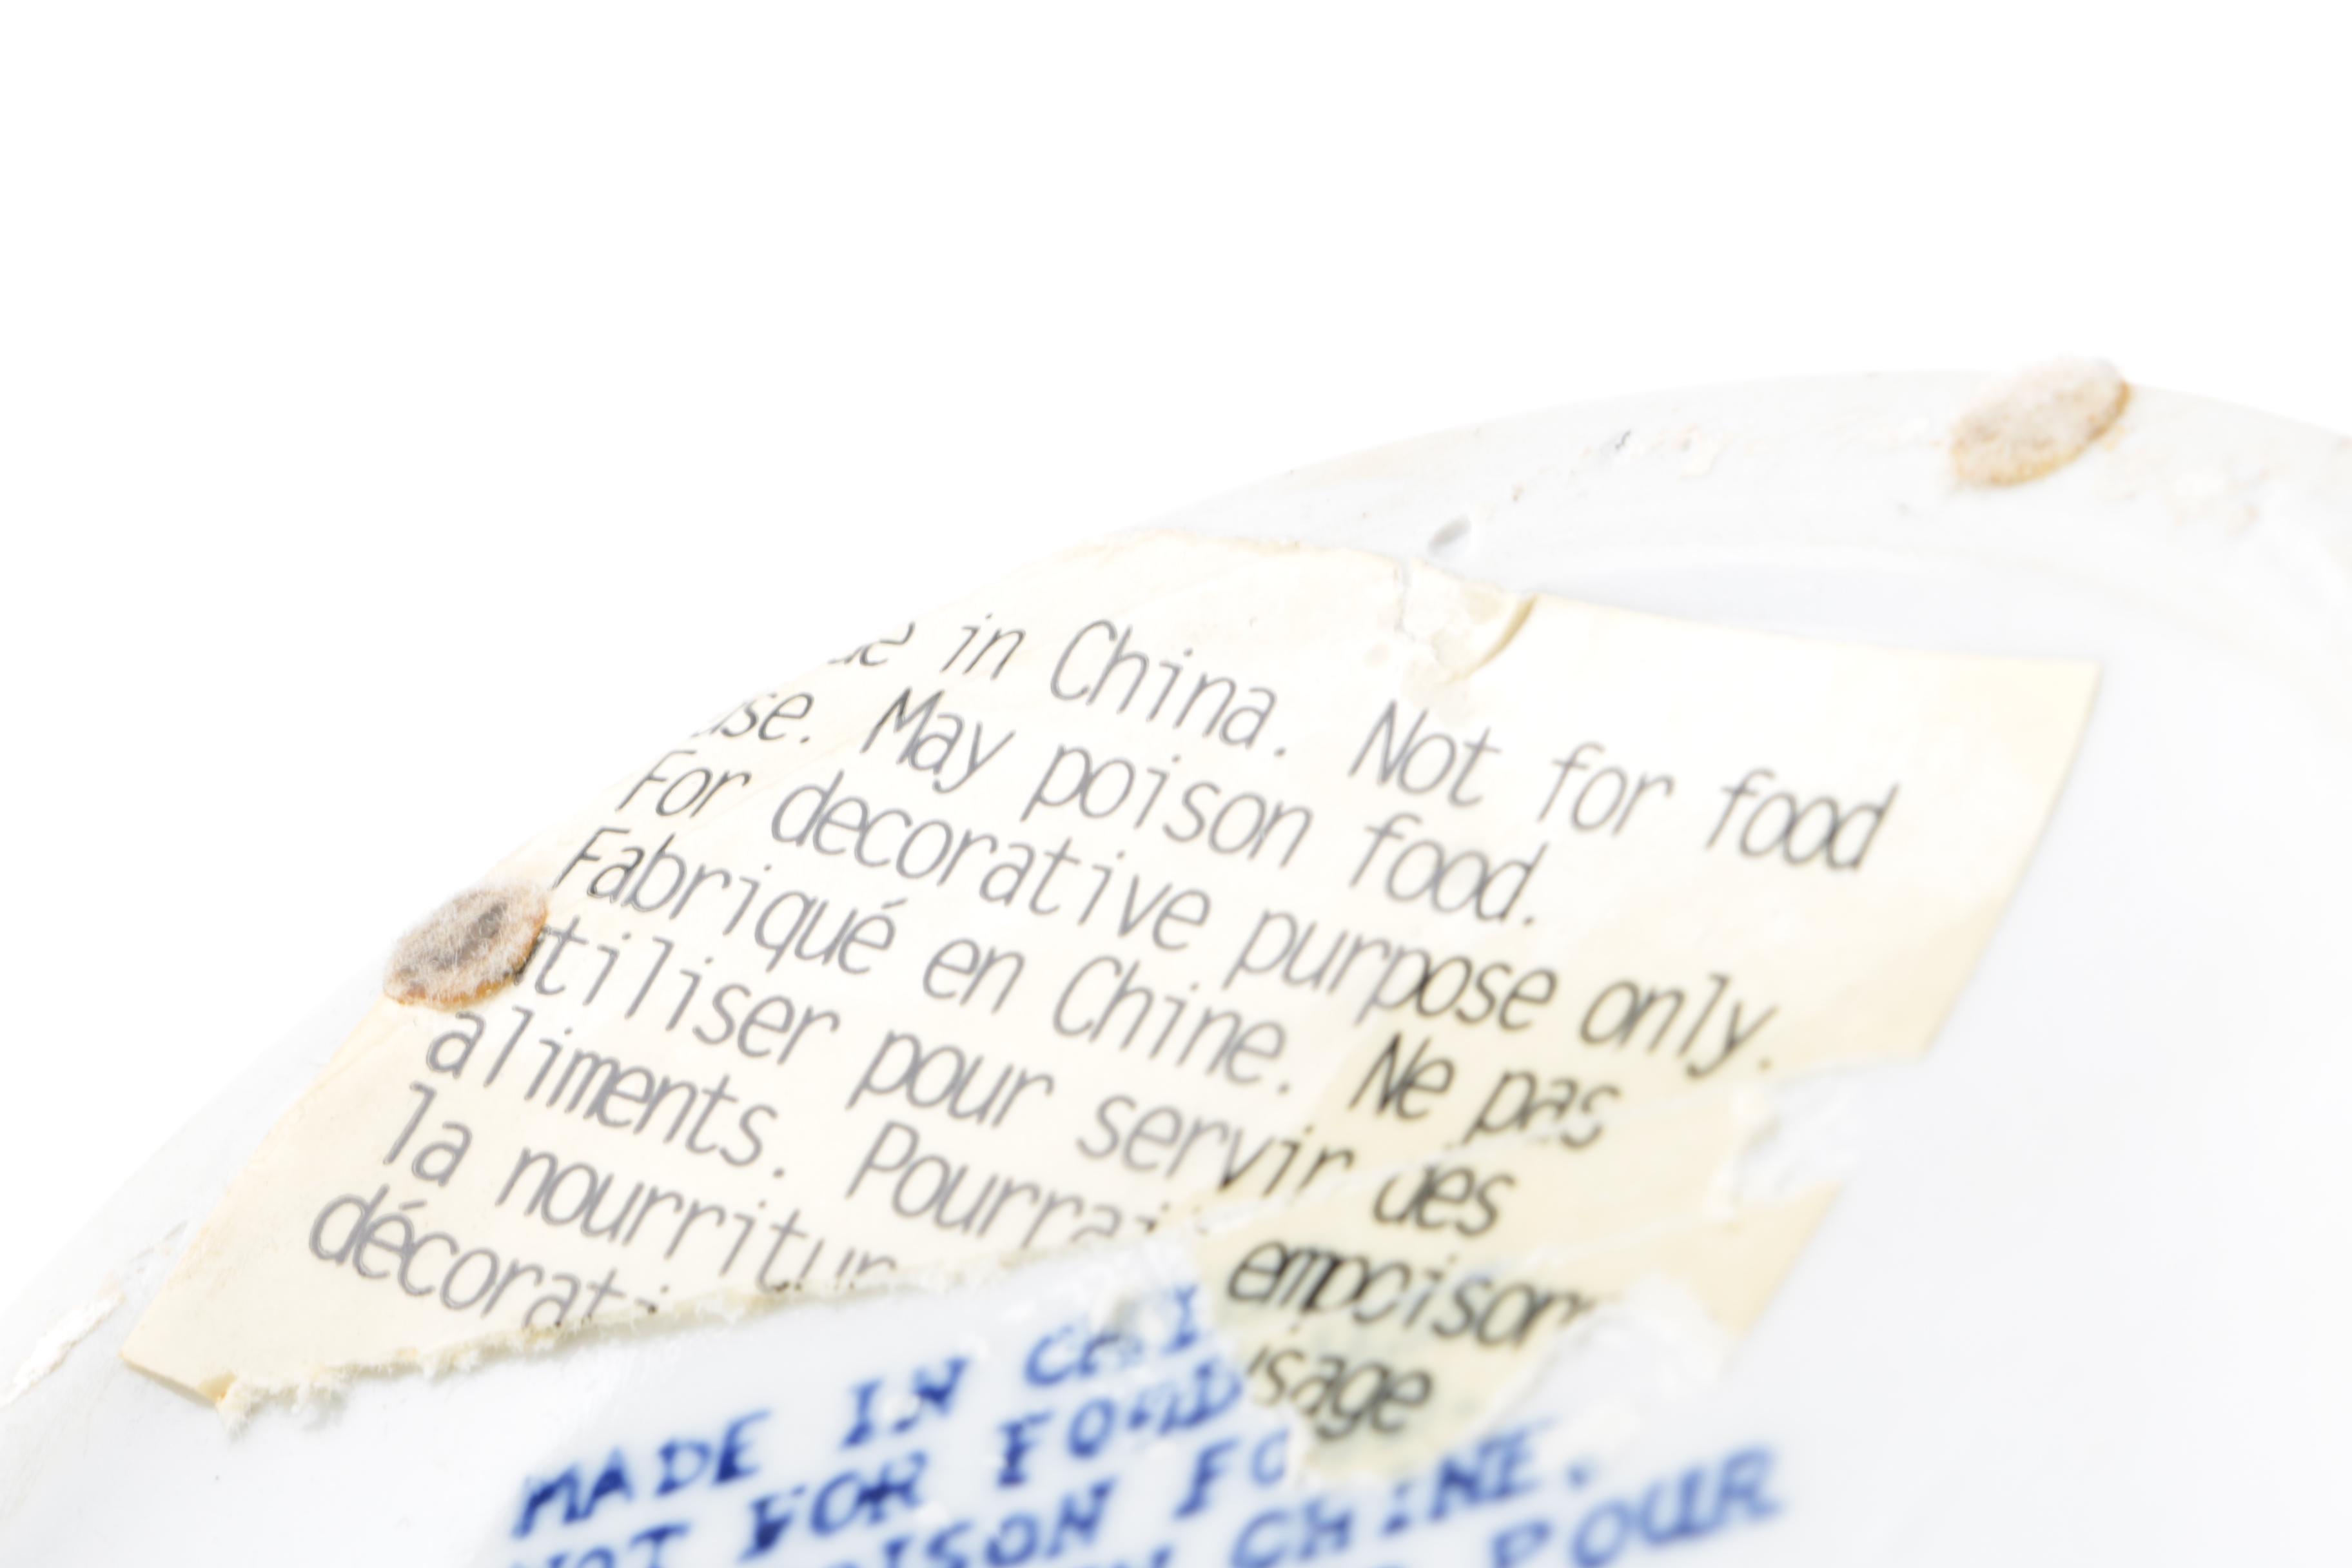 in China. Not for food
use. May poison food.
For decorative purpose only.
Fabriqué en Chine. Ne pas
utiliser pour servir des
aliments. Pourrai empoison
la nourritur usage
décorati
MADE IN CHI
NOT FOR FOOD
POISON FO
CHINE.
POUR